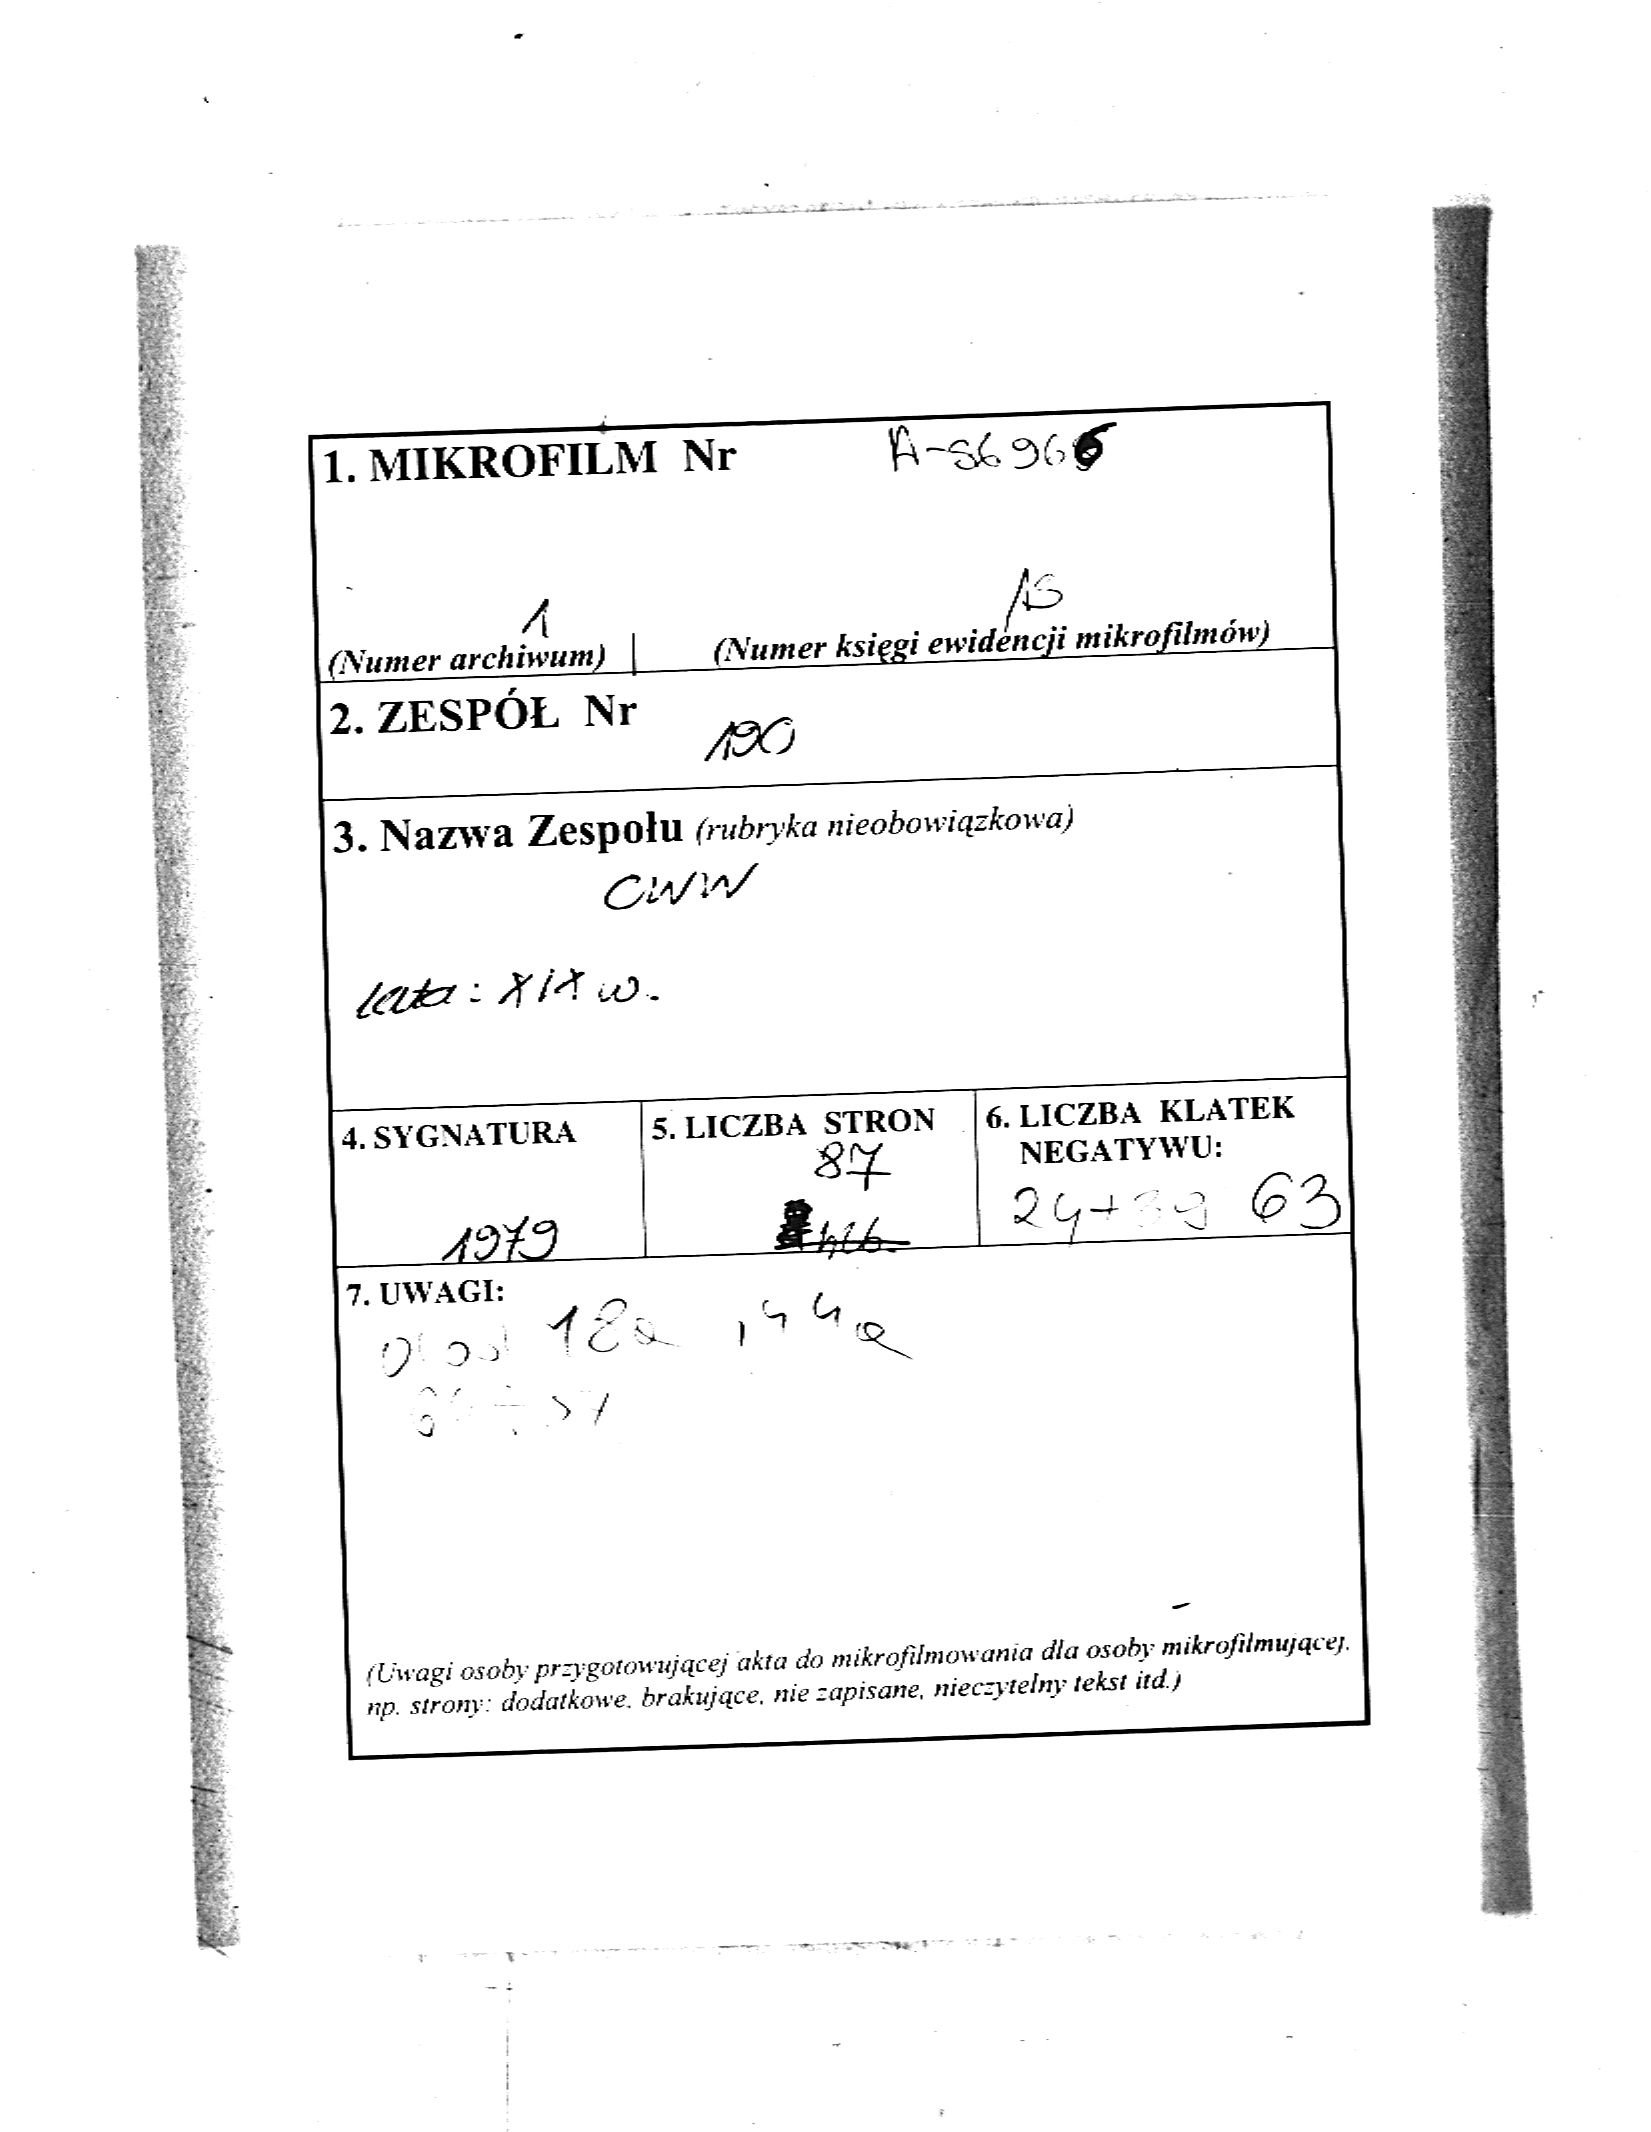 1. MIKROFILM Nr A-56966
1 15
(Numer archiwum) | (Numer księgi ewidencji mikrofilmów)
2. ZESPÓŁ Nr 190
3. Nazwa Zespołu (rubryka nieobowiązkowa)
CWW
lata: XIX w.
4. SYGNATURA
1979
5. LICZBA STRON
87
6. LICZBA KLATEK
NEGATYWU:
24+39 63
7. UWAGI:
18a , 44a
(Uwagi osoby przygotowującej akta do mikrofilmowania dla osoby mikrofilmującej,
np. strony: dodatkowe, brakujące, nie zapisane, nieczytelny tekst itd.)